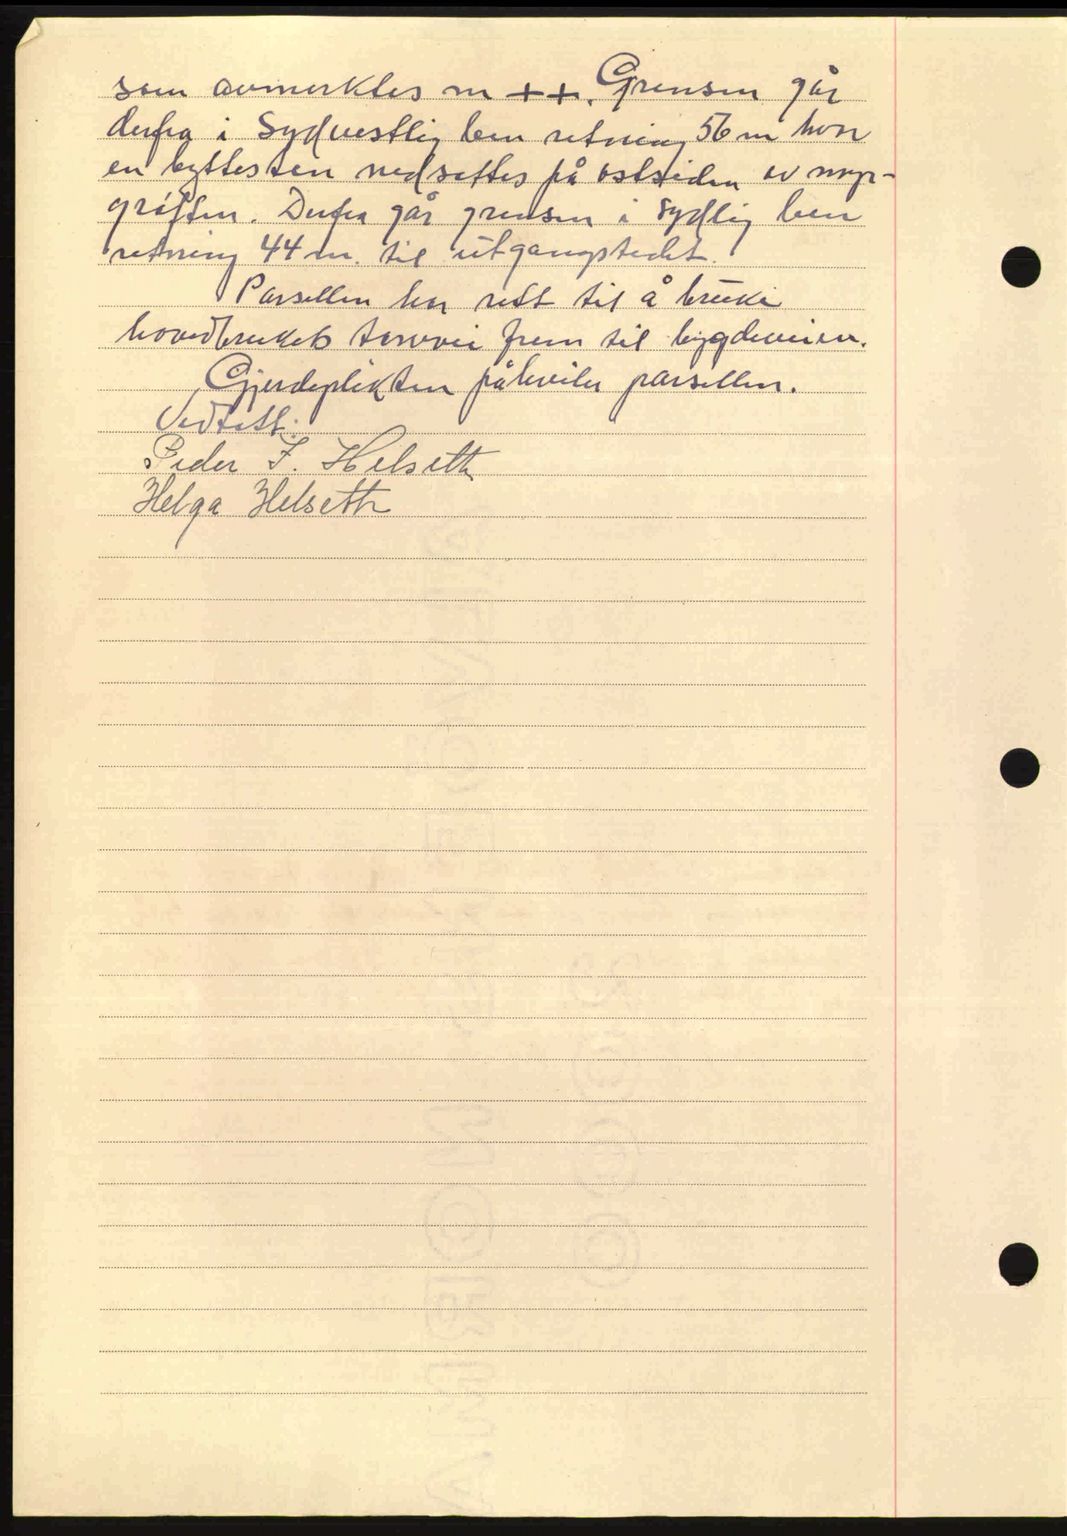 som avmerktes m ++. Grensen går
derfra i Sydvestlig ben retning 56 m hvor
en byttesten nedsettes på østsiden av myr-
grøften. Derfra går grensen i sydlig ben
retning 44 m. til utgangstedet.
Parsellen har rett til å bruke
hovedbrukets frem til bygdeveien.
Gjerdeplikten påhviler parsellen.
Vedtatt:
Peder J. Helseth
Helga Helseth